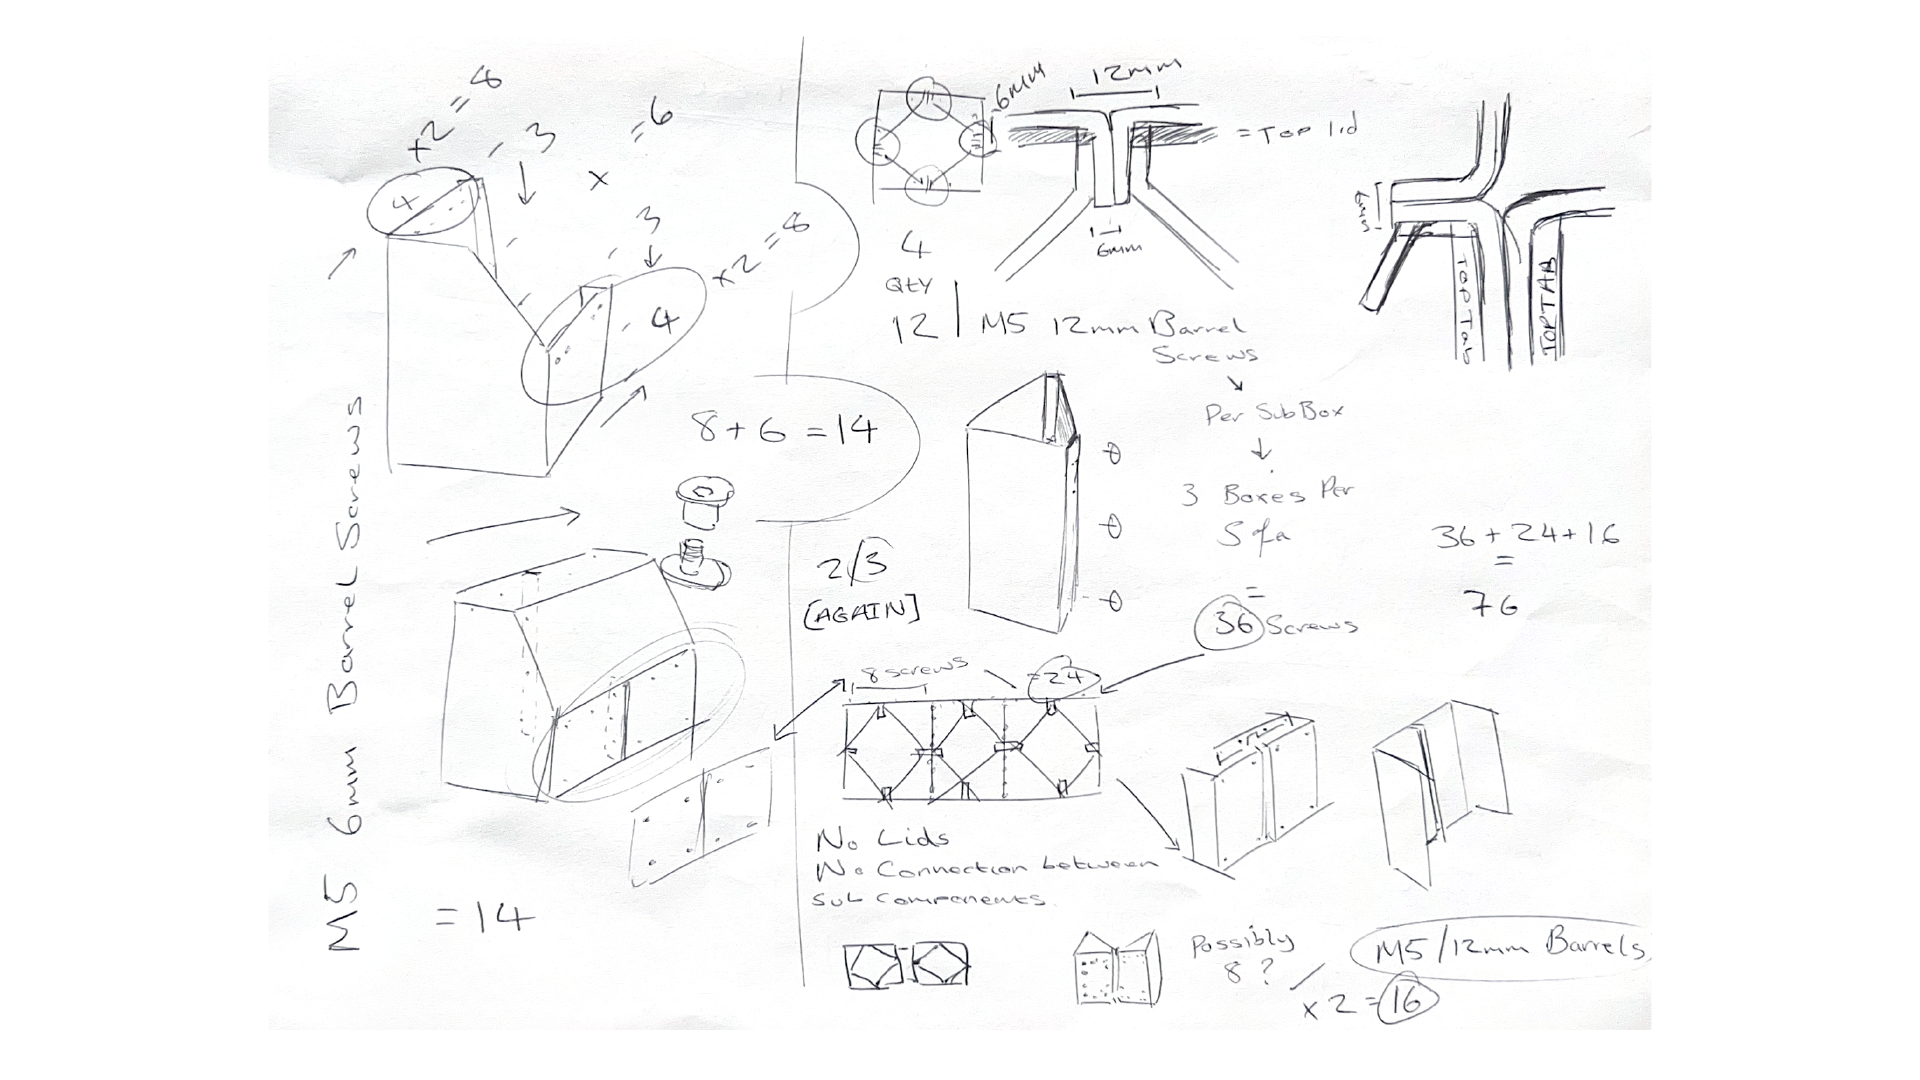 M5 6mm Barrel Screws
4
+2=8
- 3
x =6
- 3
4
x2=8
8+6=14
=14
6mm
12mm
= TOP lid
6mm
4
QTY
12 | M5 12mm Barrel
Screws
Per SubBox
3 Boxes Per
Sofa
=
36 Screws
36+24+16
=
76
6mm
TOP Tab
TOP TAB
2/3
[AGAIN]
8 screws
=24
No Lids
No Connection between
Sub Components.
Possibly
8?
x2=16
M5/12mm Barrels